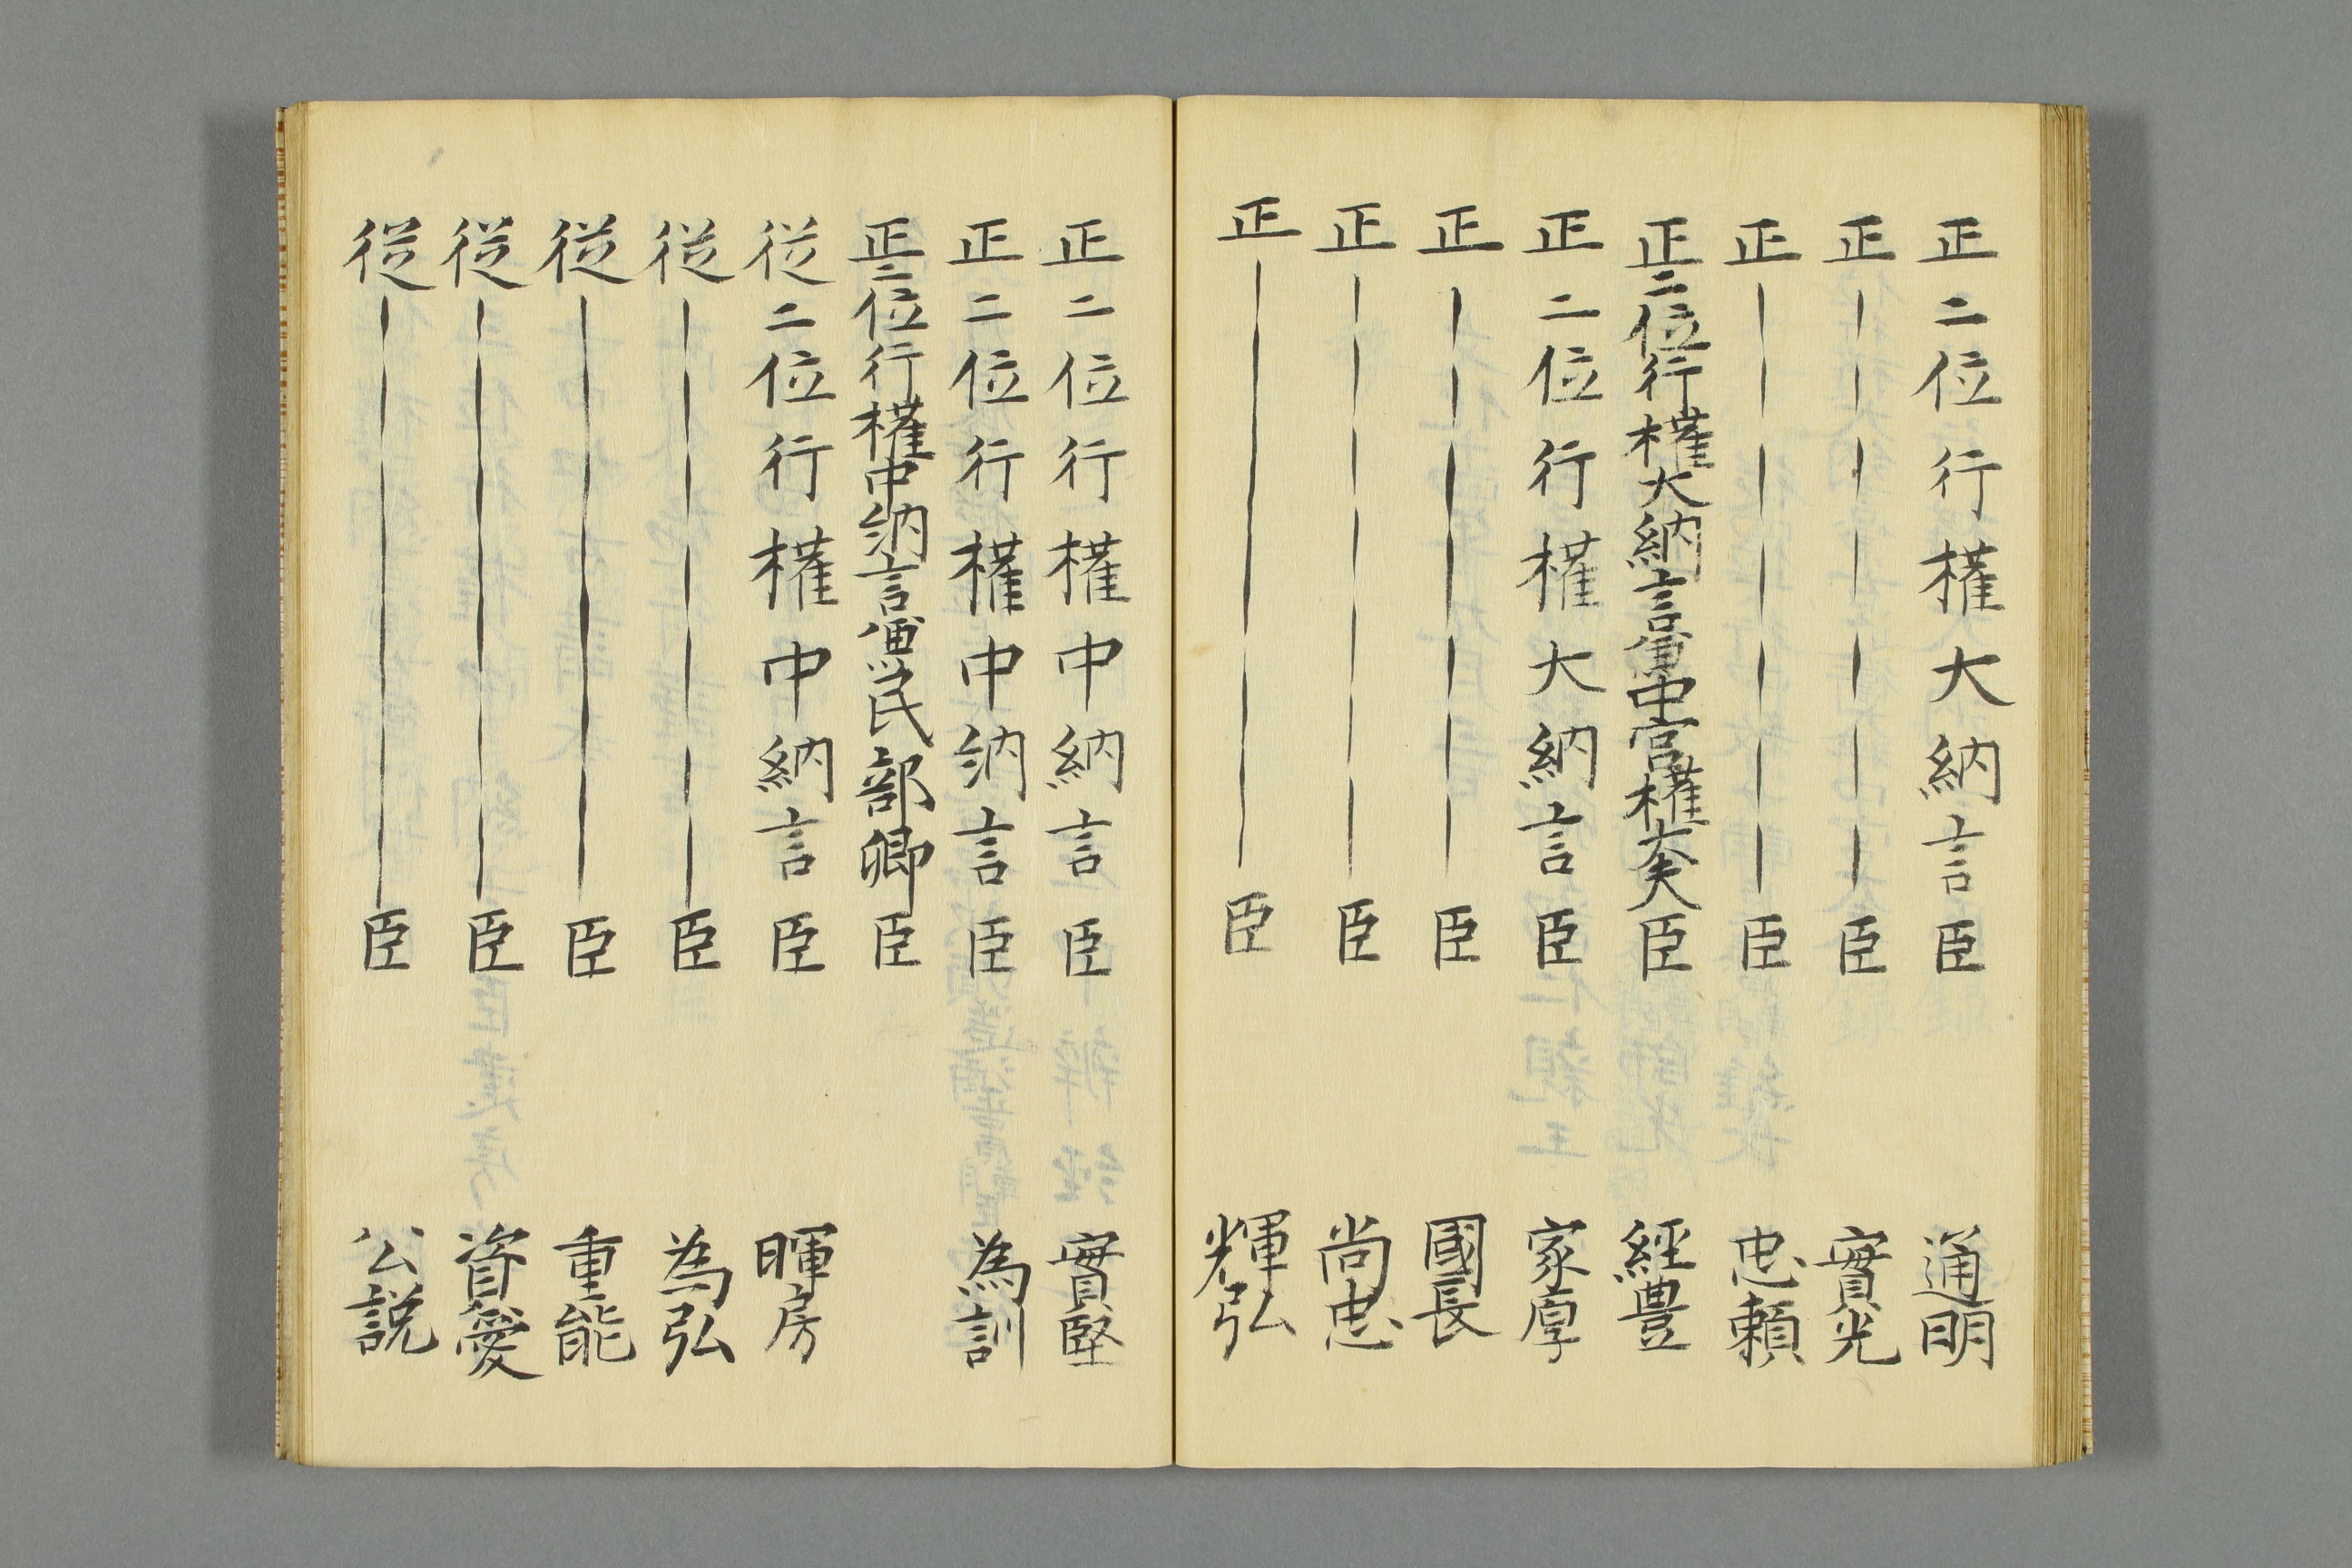 正二位行權大納言臣 通明
正――――臣 實光
正――――臣 忠頼
正二位行權大納言兼中宮權大夫臣 經豊
正二位行權大納言臣 家厚
正――――臣 國長
正――――臣 尚忠
正――――臣 輝弘
正二位行權中納言臣 實堅
正二位行權中納言臣 為訓
正二位行權中納言兼民部卿臣
従二位行權中納言臣 暉房
従――――臣 為弘
従――――臣 重能
従――――臣 資愛
従――――臣 公説